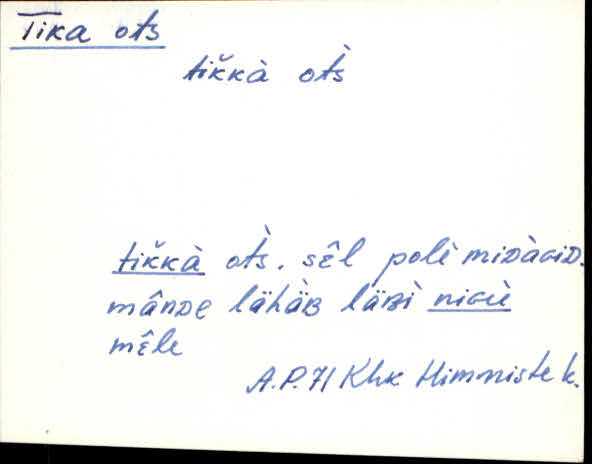 Tika ots
tik̆kà ot̀s
tik̆kà ot̀s. sêl polè miᴅàɢiᴅ.
mânᴅe lähàʙ läʙì niɢù
mêle
A.P. 71 Khk Himmiste k.